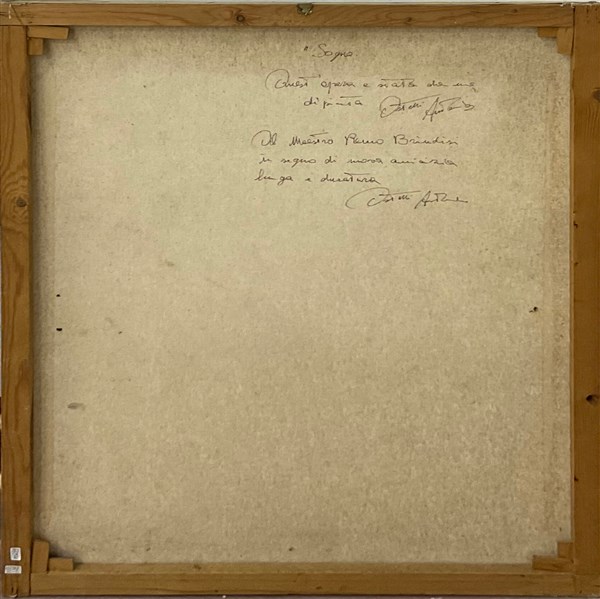 "Sogno"
Quest'opera è stata da me
dipinta
Al Maestro Remo Brindisi
in segno di nuova amicizia
lunga e duratura